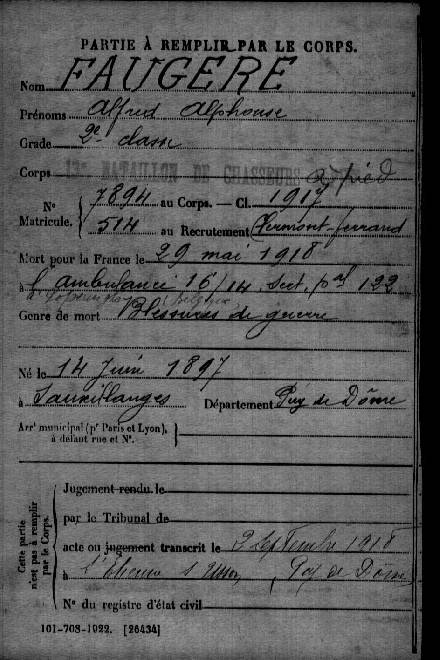 PARTIE À REMPLIR PAR LE CORPS.
Nom FAUGERE
Prénoms Alfred Alphonse
Grade 2e classe
Corps 13e BATAILLON DE CHASSEURS à pied
N° Matricule. { 7894 au Corps. — Cl. 1917
514 au Recrutement Clermont-ferrand
Mort pour la France le 29 mai 1918
à l'ambulance 16/14, Sect. pal 122
(Belgique)
Genre de mort Blessures de guerre
Né le 14 Juin 1897
à Sauxillanges Département Puy de Dôme
Arrt municipal (pr Paris et Lyon), à défaut rue et N°.
Cette partie n'est pas à remplir par le Corps.
Jugement rendu le
par le Tribunal de
acte ou jugement transcrit le 2 septembre 1918
à St Etienne s Usson, Puy de Dôme
N° du registre d'état civil
101-708-1922. [26434]